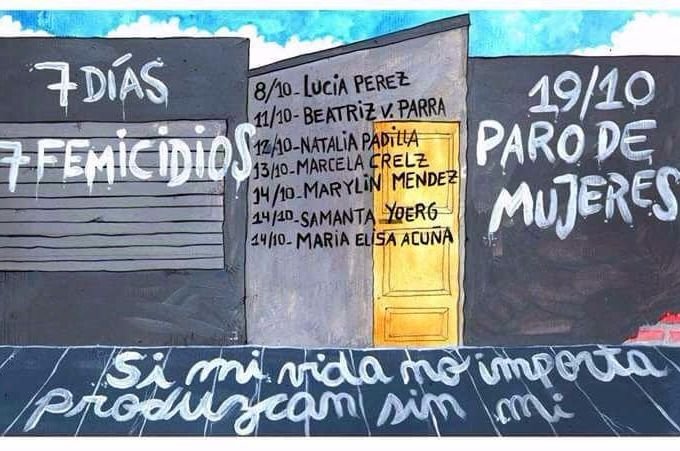 7 DÍAS
7 FEMICIDIOS
8/10- LUCÍA PEREZ
11/10- BEATRIZ V. PARRA
12/10- NATALIA PADILLA
13/10- MARCELA CRELZ
14/10- MARYLIN MENDEZ
14/10- SAMANTA YOERG
14/10- MARIA ELISA ACUÑA
19/10
PARO DE
MUJERES
Si mi vida no importa
produzcan sin mi